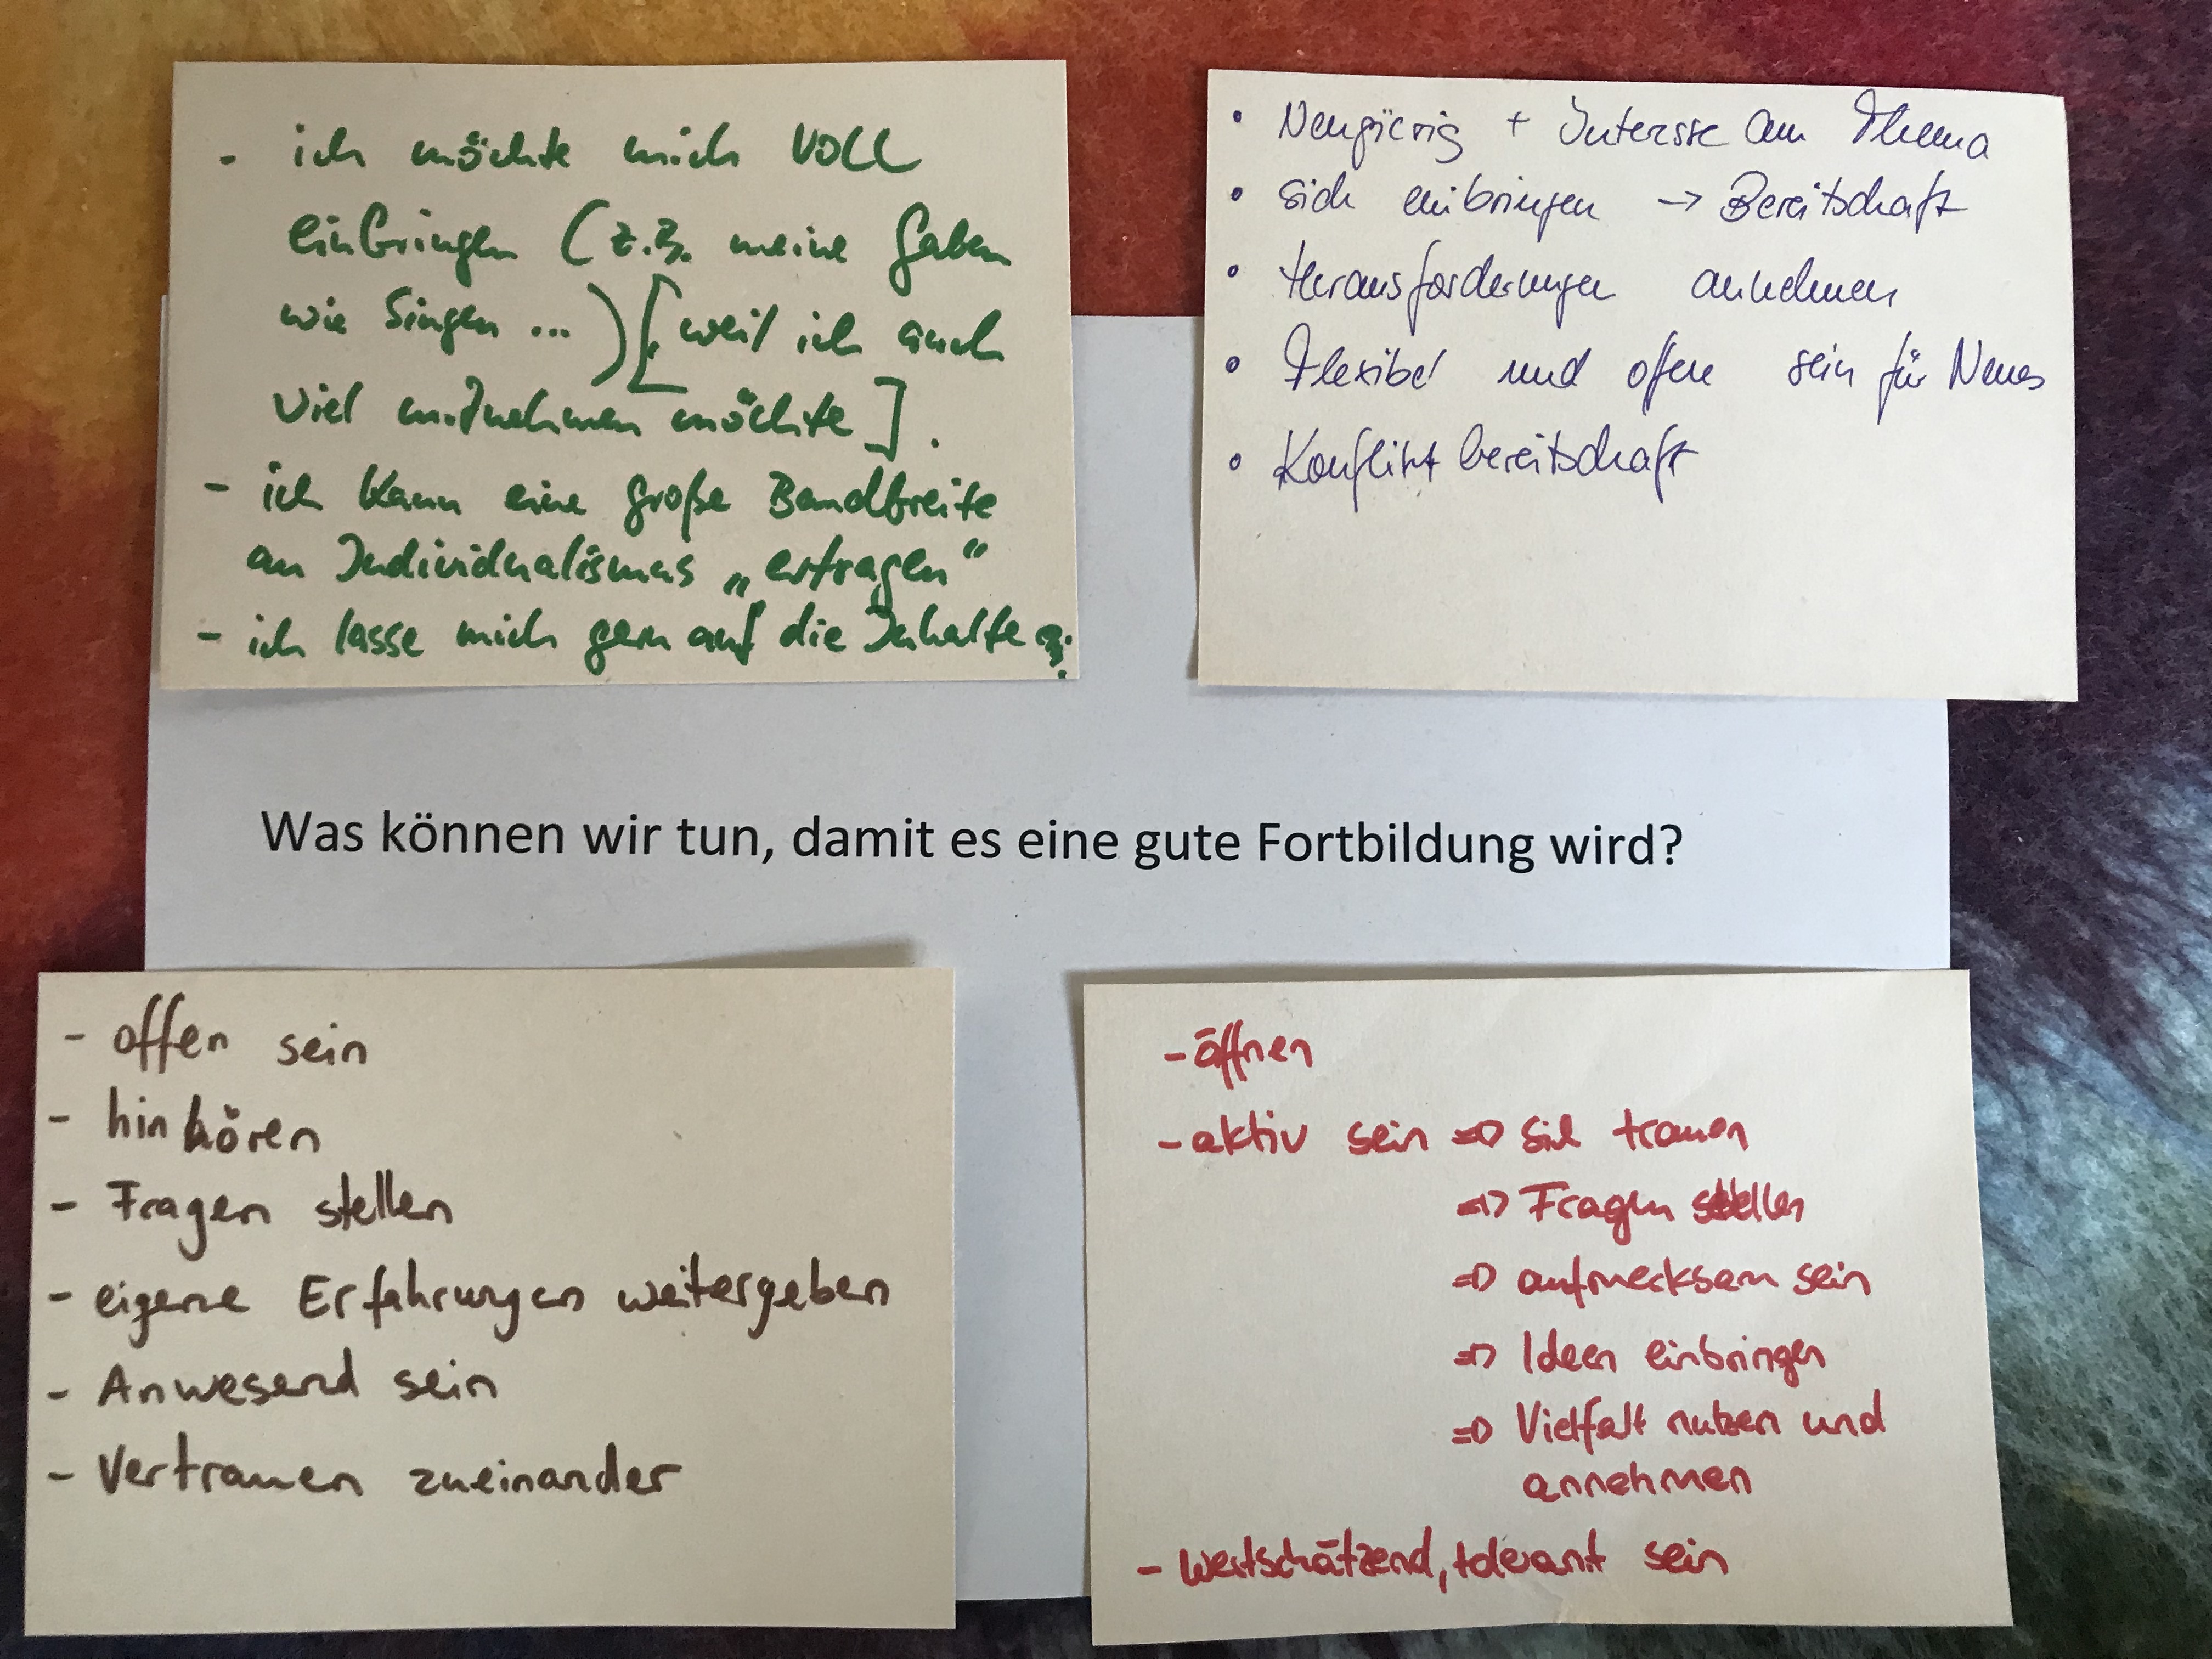 - ich möchte mich voll
einbringen (z.B. meine Gaben
wie Singen ...) [weil ich auch
viel mitnehmen möchte].
- ich kann eine große Bandbreite
an Individualismus „ertragen“
- ich lasse mich gern auf die Inhalte
• Neugierig + Interesse am Thema
• sich einbringen → Bereitschaft
• Herausforderungen annehmen
• Flexibel und offen sein für Neues
• Konfliktbereitschaft
Was können wir tun, damit es eine gute Fortbildung wird?
- offen sein
- hinhören
- Fragen stellen
- eigene Erfahrungen weitergeben
- Anwesend sein
- Vertrauen zueinander
- öffnen
- aktiv sein => sich trauen
=> Fragen stellen
=> aufmerksam sein
=> Ideen einbringen
=> Vielfalt nutzen und
annehmen
- wertschätzend, tolerant sein